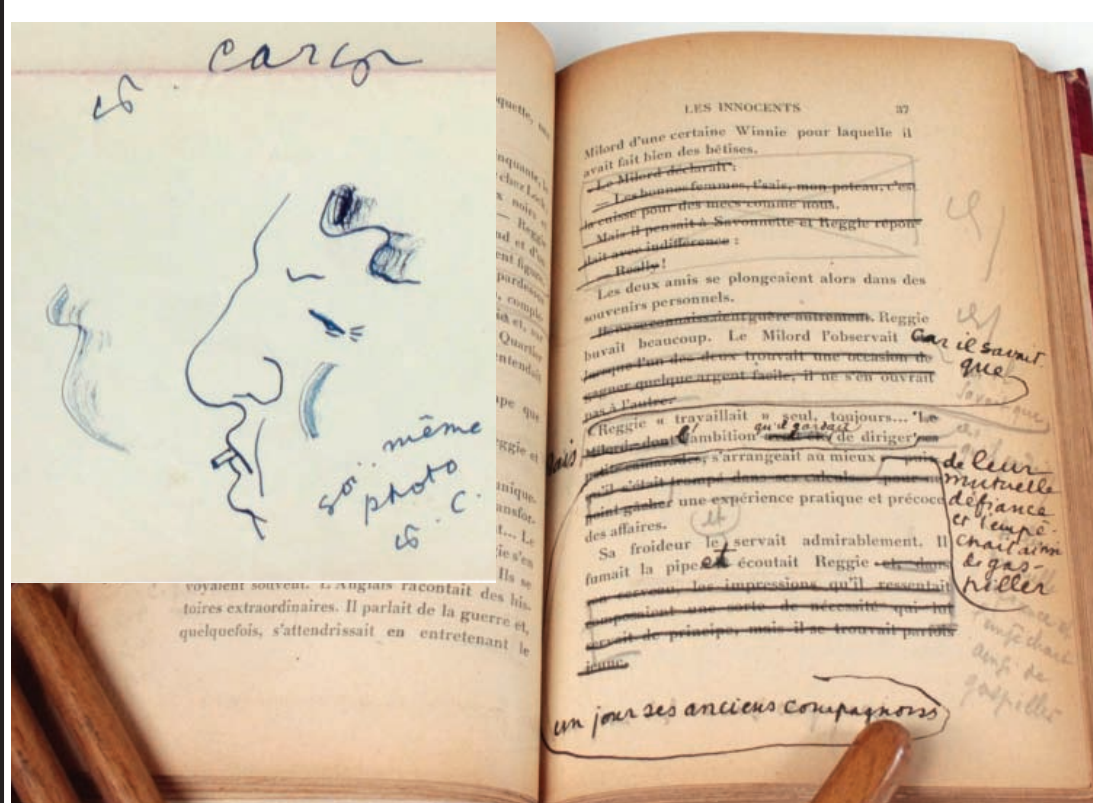 carco
même
photo
C.
quette, 
nquante, le
chez Lech
x noirs et
— Reggie
nd et d'un
ent figure
pardessus
, comple-
et, sur
Quartier
entendait
pe que
eggie et
unique.
ansfor-
... Le
gie s'en
Ils se
voyaient souvent. L'Anglais racontait des his-
toires extraordinaires. Il parlait de la guerre et,
quelquefois, s'attendrissait en entretenant le
LES INNOCENTS 37
Milord d'une certaine Winnie pour laquelle il
avait fait bien des bêtises.
— Le Milord déclarait :
— Les bonnes femmes, t'sais, mon poteau, c'est
la cuisse pour des mecs comme nous.
Mais il pensait à Savonnette et Reggie répon-
dait avec indifférence :
— Really !
Les deux amis se plongeaient alors dans des
souvenirs personnels.
Ils ne se connaissaient guère autrement. Reggie
buvait beaucoup. Le Milord l'observait car il savait
que
lorsque l'un des deux trouvait une occasion de
gagner quelque argent facile, il ne s'en ouvrait
pas à l'autre.
Reggie « travaillait » seul, toujours... Le
qu'il gardait
Milord, dont l'ambition était de diriger ses
petits camarades, s'arrangeait au mieux
qu'il s'était trompé dans ses calculs pour ne
point gâcher une expérience pratique et précoce
des affaires.
de leur
mutuelle
défiance
et l'empê-
chait ainsi
de gas-
piller
et
Sa froideur le servait admirablement. Il
fumait la pipe et écoutait Reggie
un cerveau, les impressions qu'il ressentait
composaient une sorte de nécessité qui lui
servait de principe, mais il se trouvait parfois
jeune.
un jour ses anciens compagnons
savait que
l'empêchait
ainsi de
gaspiller